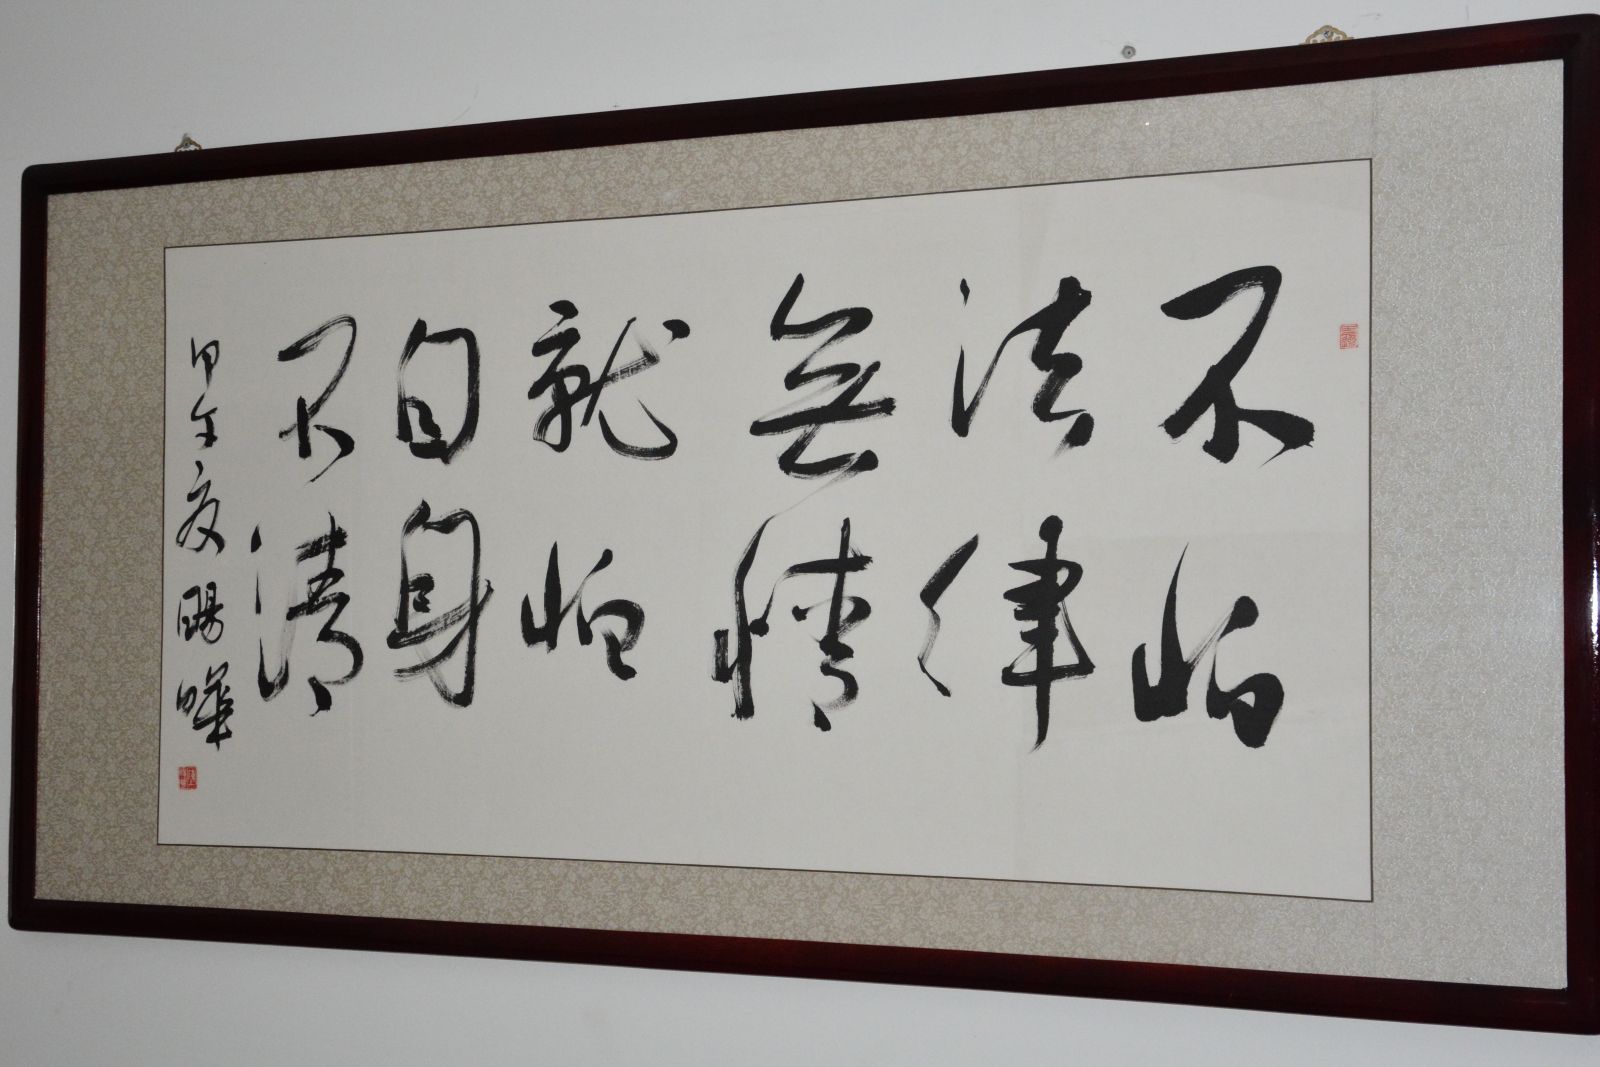 不怕
法律
無情
就怕
自身
不清
甲午夏 暘曄